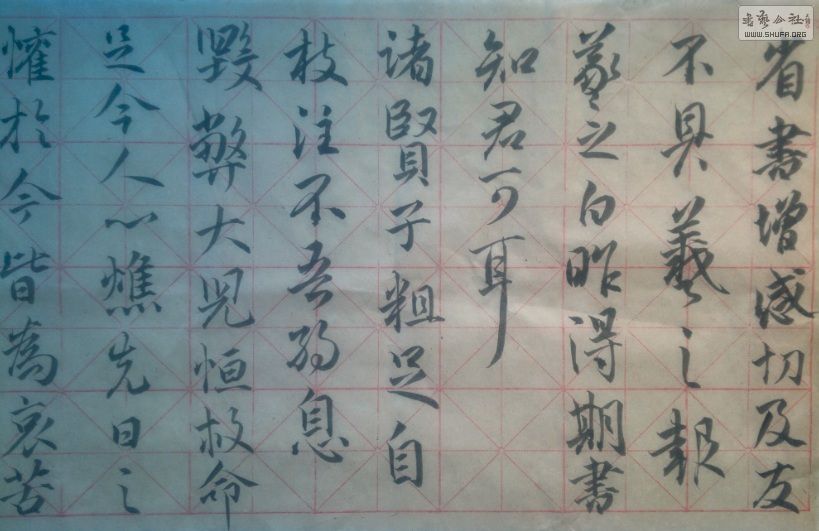 省書增感切及友
不具羲之報
羲之白昨得期書
知君可耳
諸賢子粗足自
枝注不吾弱息
毀弊大兒恒救命
足令人心憔先日之
懽於今皆為哀苦
書藝公社
WWW.SHUFA.ORG